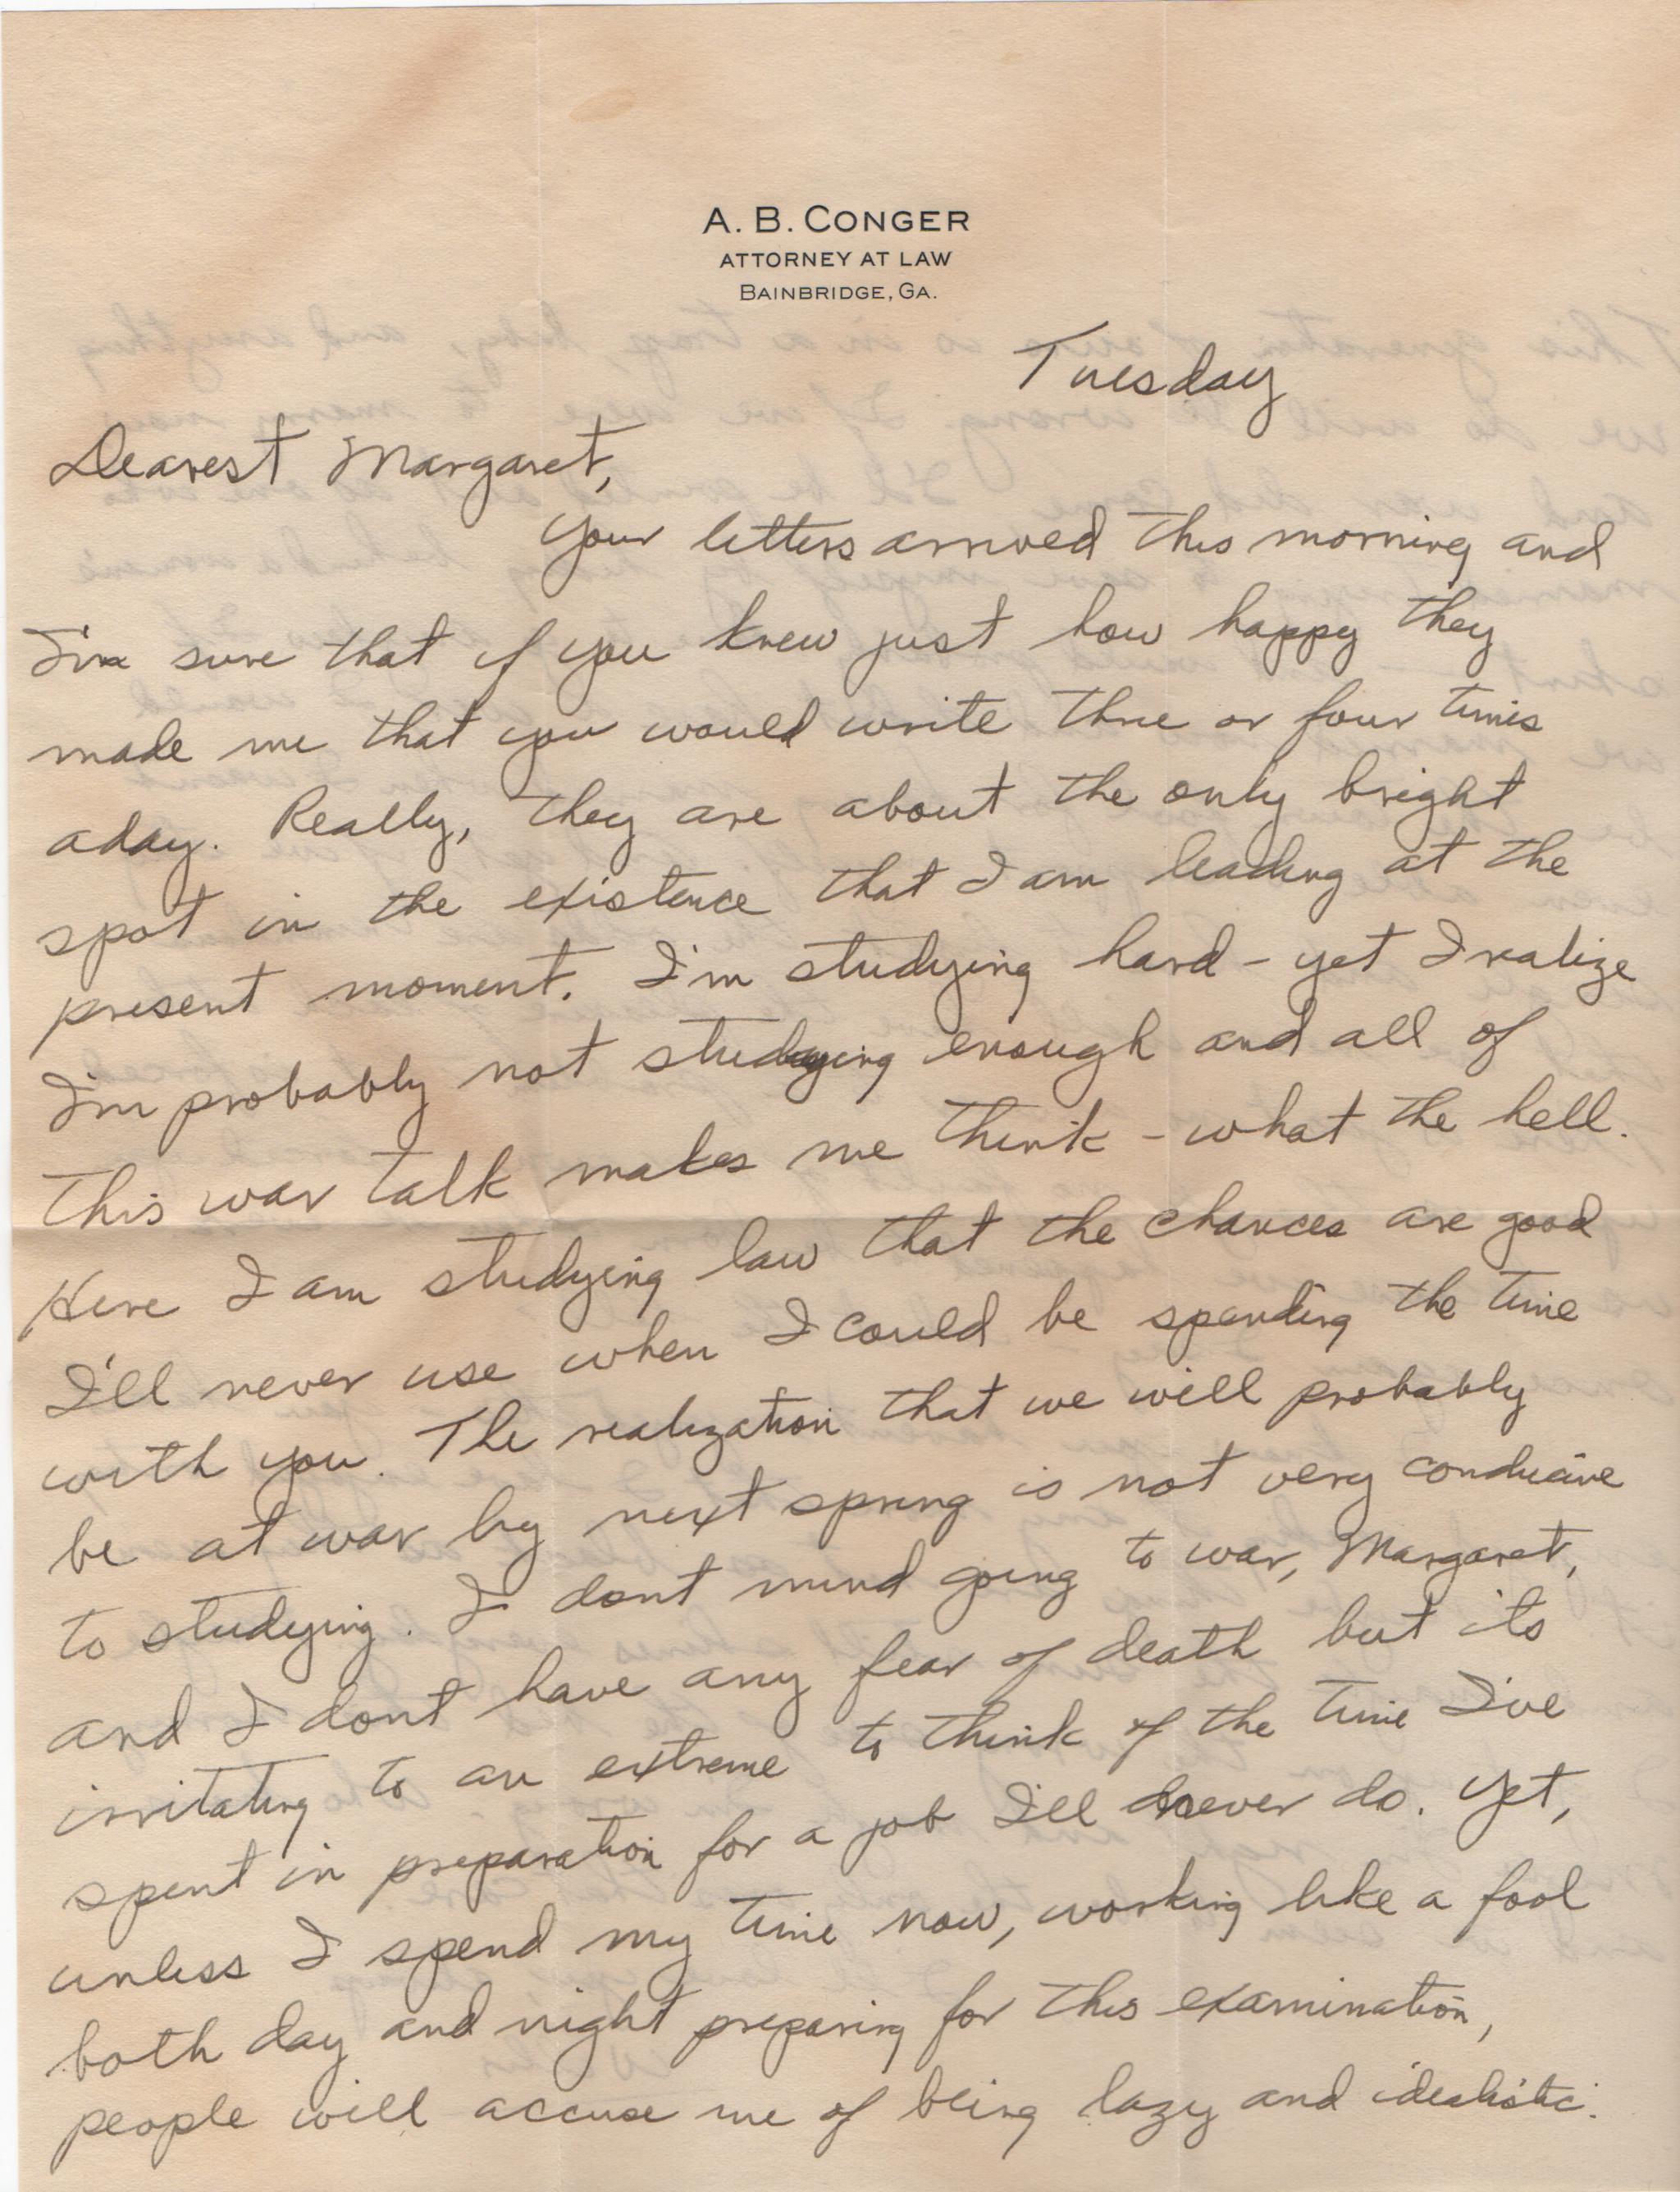 A. B. CONGER
ATTORNEY AT LAW
BAINBRIDGE, GA.
Tuesday
Dearest Margaret,
Your letters arrived this morning and
I'm sure that if you knew just how happy they
made me that you would write three or four times
a day. Really, they are about the only bright
spot in the existence that I am leading at the
present moment. I'm studying hard - yet I realize
I'm probably not studying enough and all of
this war talk makes me think - what the hell.
Here I am studying law that the chances are good
I'll never use when I could be spending the time
with you. The realization that we will probably
be at war by next spring is not very conducive
to studying. I dont mind going to war, Margaret,
and I dont have any fear of death but its
irritating to an extreme to think of the time I've
spent in preparation for a job I'll never do. Yet,
unless I spend my time now, working like a fool
both day and night preparing for this examination,
people will accuse me of being lazy and idealistic.